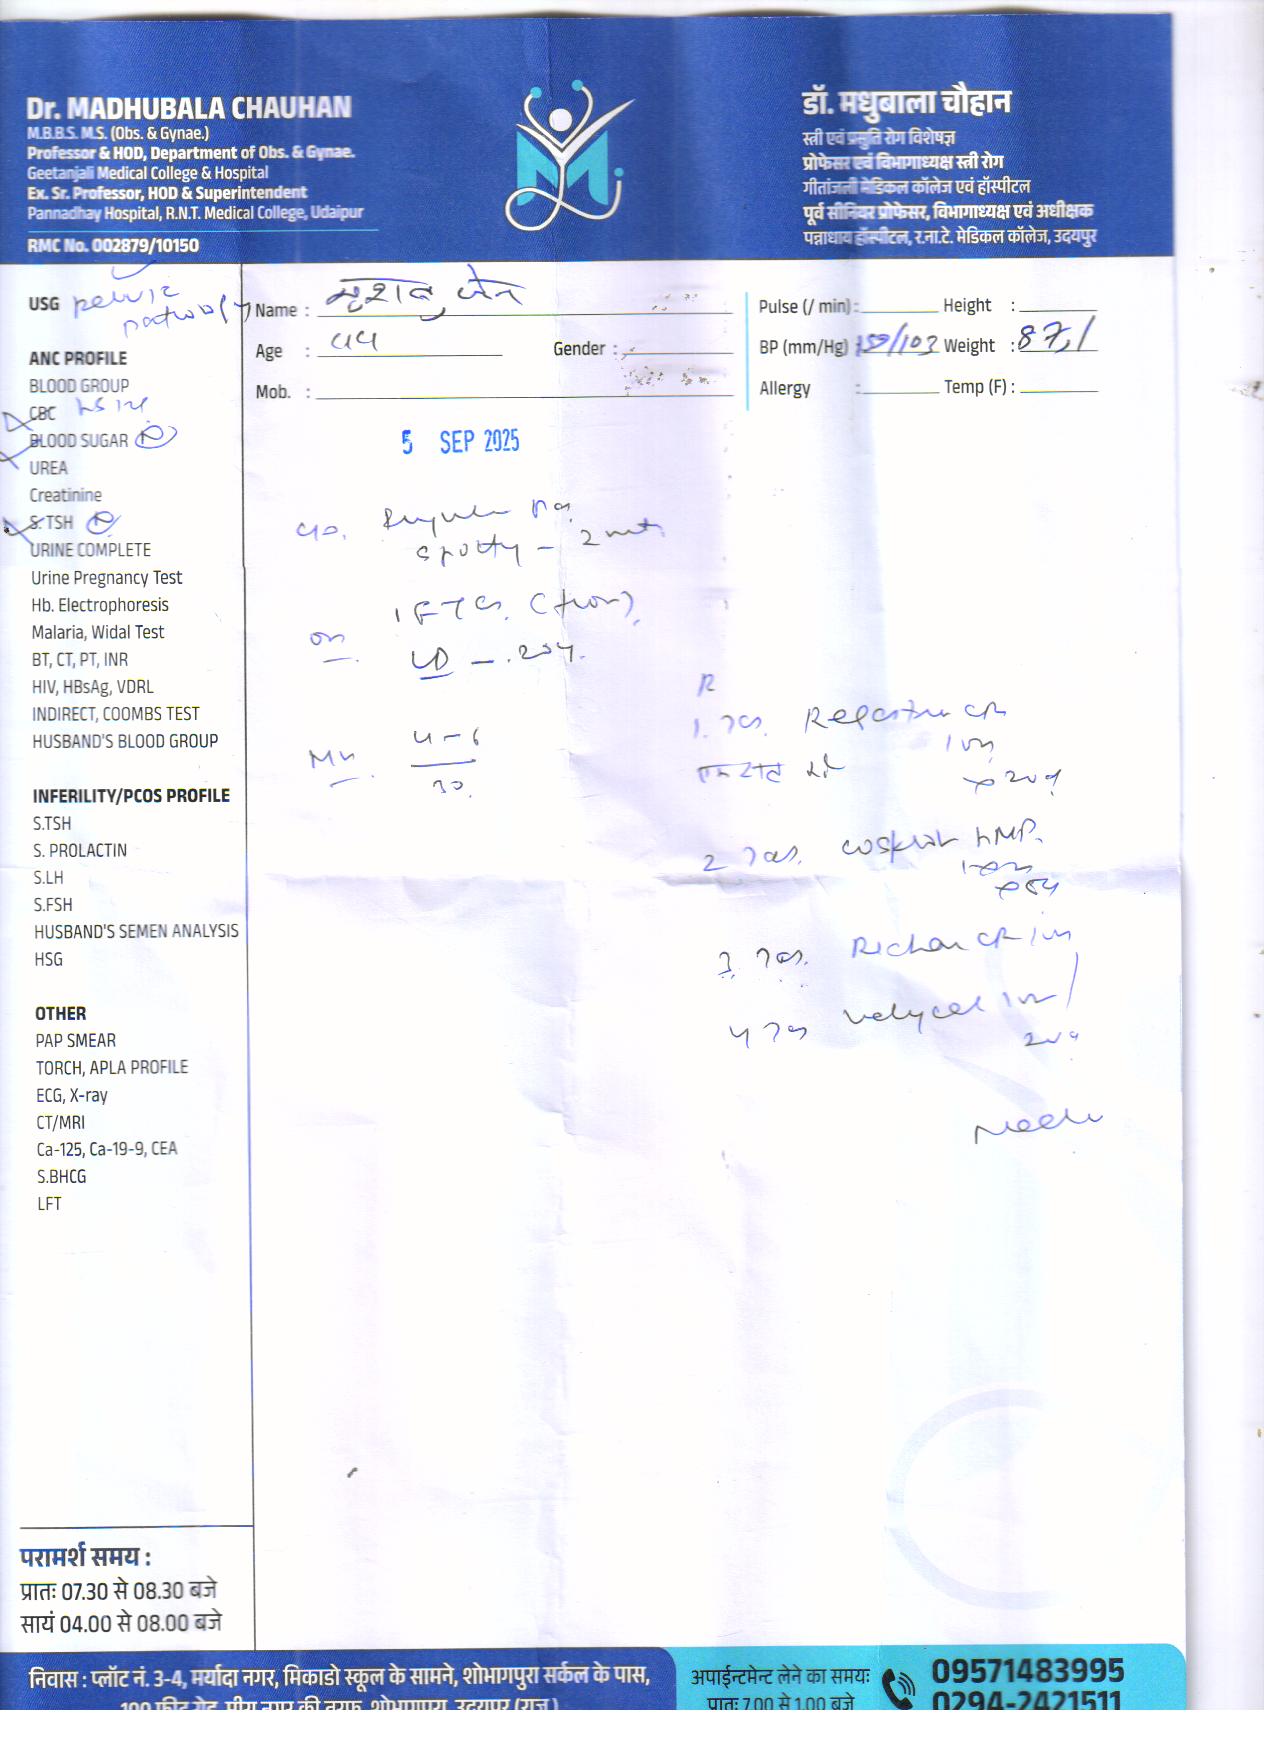 Dr. MADHUBALA CHAUHAN
M.B.B.S. M.S. (Obs. & Gynae.)
Professor & HOD, Department of Obs. & Gynae.
Geetanjali Medical College & Hospital
Ex. Sr. Professor, HOD & Superintendent
Pannadhay Hospital, R.N.T. Medical College, Udaipur
RMC No. 002879/10150
डॉ. मधुबाला चौहान
स्त्री एवं प्रसुति रोग विशेषज्ञ
प्रोफेसर एवं विभागाध्यक्ष स्त्री रोग
गीतांजली मेडिकल कॉलेज एवं हॉस्पीटल
पूर्व सीनियर प्रोफेसर, विभागाध्यक्ष एवं अधीक्षक
पन्नाधाय हॉस्पीटल, र.ना.टे. मेडिकल कॉलेज, उदयपुर
USG pelvic
ANC PROFILE
BLOOD GROUP
CBC
BLOOD SUGAR
UREA
Creatinine
S. TSH
URINE COMPLETE
Urine Pregnancy Test
Hb. Electrophoresis
Malaria, Widal Test
BT, CT, PT, INR
HIV, HBsAg, VDRL
INDIRECT, COOMBS TEST
HUSBAND'S BLOOD GROUP
INFERILITY/PCOS PROFILE
S.TSH
S. PROLACTIN
S.LH
S.FSH
HUSBAND'S SEMEN ANALYSIS
HSG
OTHER
PAP SMEAR
TORCH, APLA PROFILE
ECG, X-ray
CT/MRI
Ca-125, Ca-19-9, CEA
S.BHCG
LFT
परामर्श समय :
प्रातः 07.30 से 08.30 बजे
सायं 04.00 से 08.00 बजे
Name :
Age :
Gender :
Mob. :
Pulse (/ min) :
Height :
BP (mm/Hg) : 150/103
Weight : 87.1
Allergy :
Temp (F) :
5 SEP 2025
c/o. Regular
spotty - 2
LD - 20y.
4-6
30
R
1.
2
3
4
निवास : प्लॉट नं. 3-4, मर्यादा नगर, मिकाडो स्कूल के सामने, शोभागपुरा सर्कल के पास,
अपाईन्टमेन्ट लेने का समयः
प्रातः 7.00 से 1.00 बजे
09571483995
0294-2421511